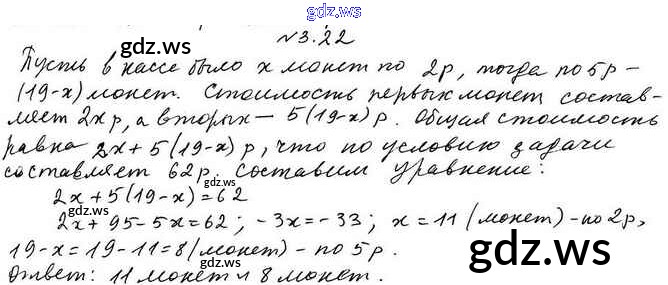 gdz.ws
gdz.ws gdz.ws
№3.22
Пусть в кассе было x монет по 2р, тогда по 5р –
(19-x) монет. Стоимость первых монет состав-
ляет 2x р, а вторых – 5(19-x) р. Общая стоимость
равна 2x+5(19-x) р, что по условию задачи
составляет 62р. Составим уравнение:
gdz.ws gdz.ws
2x+5(19-x)=62
gdz.ws
2x+95-5x=62; -3x=-33; x=11 (монет) – по 2р,
19-x=19-11=8 (монет) – по 5р.
gdz.ws gdz.ws
Ответ: 11 монет и 8 монет.
gdz.ws